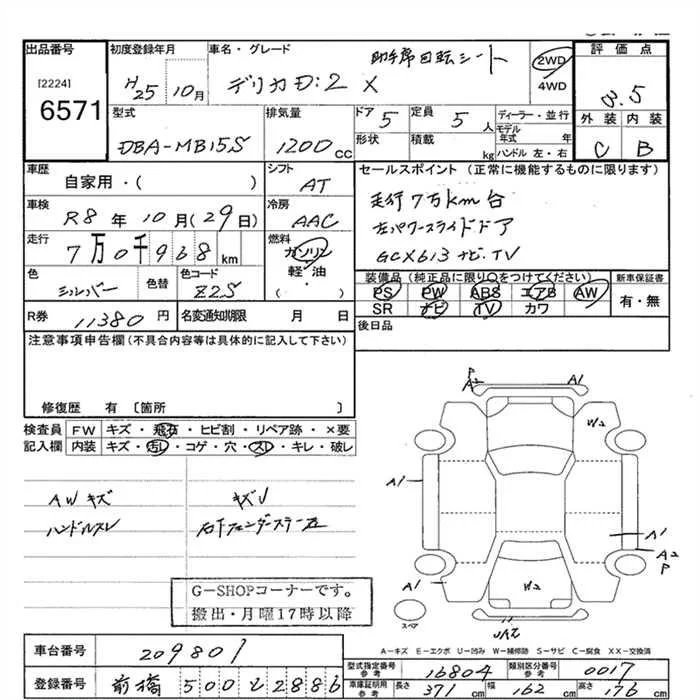 出品番号
[2224]
6571
初度登録年月
H25 10月
車名・グレード
助手席回転シート
デリカD:2 X
2WD
4WD
評価点
3.5
外装 内装
C B
型式
DBA-MB15S
排気量
1200 CC
ドア 5
定員 5 人
形状
積載 kg
ディーラー・並行
モデル年式 年
ハンドル 左・右
車歴
自家用・( )
シフト
AT
セールスポイント (正常に機能するものに限ります)
走行7万km台
左パワースライドドア
GCX613 ナビ.TV
車検
R8年10月(29日)
冷房
AAC
走行
7万0千968km
燃料
ガソリン
軽・油
( )
色
シルバー
色替
色コード
Z2S
装備品 (純正品に限り○をつけてください)
PS PW ABS エアB AW
SR ナビ TV カワ
新車保証書
有・無
R券 11380円
名変通知期限 月 日
後日品
注意事項申告欄(不具合内容等は具体的に記入して下さい)
修復歴 有 〔箇所 〕
検査員 FW キズ・飛石・ヒビ割・リペア跡・×要
記入欄 内装 キズ・汚レ・コゲ・穴・スレ・キレ・破レ
AWキズ
ハンドルスレ
キズU
G-SHOPコーナーです。
搬出・月曜17時以降
P
A2
A1
W2
A1
A1
A2
P
A1
W2
UA2
スペア
A-キズ E-エクボ U-凹み W-補修跡 S-サビ C-腐食 XX-交換済
車台番号 209801
登録番号 前橋 500 て 2886
型式指定番号 参考 16804
類別区分番号 参考 0017
車庫証明用 参考
長さ 371 cm
幅 162 cm
高さ 176 cm